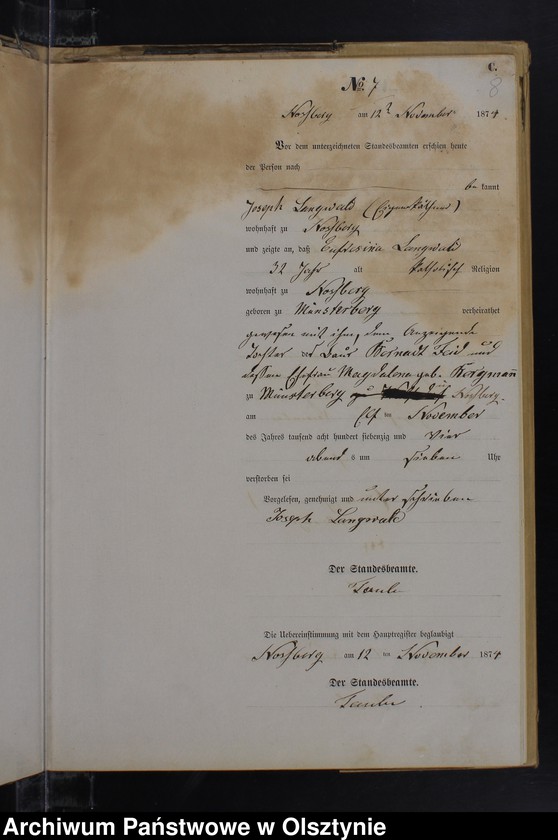 C.
8
No. 7
Nossberg am 12t November 1874
Vor dem unterzeichneten Standesbeamten erschien heute
der Person nach
be kannt
Joseph Langwald (Eigenkäthner)
wohnhaft zu Nossberg
und zeigte an, daß Eufrosina Langwald
32 Jahr alt katholisch Religion
wohnhaft zu Nossberg
geboren zu Münsterberg verheirathet
gewesen mit ihm, dem Anzeigende
Tochter der Baur und
dessen Ehefrau Magdalena geb. Bergmann
zu Münsterberg Nossberg
am Elf ten November
des Jahres tausend acht hundert siebenzig und vier
abend s um sieben Uhr
verstorben sei
Vorgelesen, genehmigt und unterschrieben
Joseph Langwald
Der Standesbeamte.
Die Uebereinstimmung mit dem Hauptregister beglaubigt
Nossberg am 12 ten November 1874
Der Standesbeamte.
Archiwum Państwowe w Olsztynie